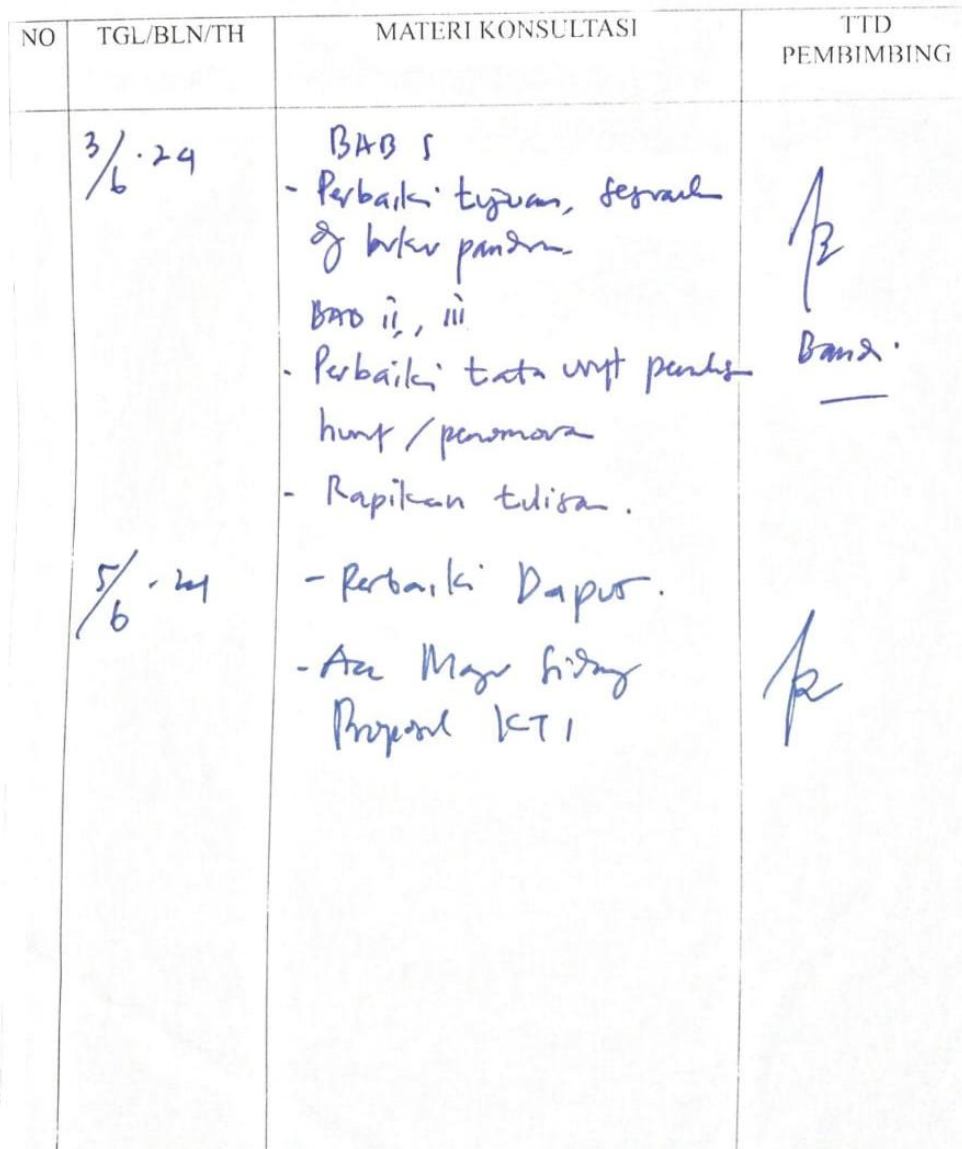 NO TGL/BLN/TH MATERI KONSULTASI TTD
PEMBIMBING
3/6.24 BAB I
- Perbaiki tujuan, sesuaikan
dg buku panduan
BAB ii, iii
- Perbaiki tata urut penulis
huruf / penomoran
- Rapikan tulisan.
5/6.24 - Perbaiki Dapus.
- Acc Maju Sidang
Proposal KTI